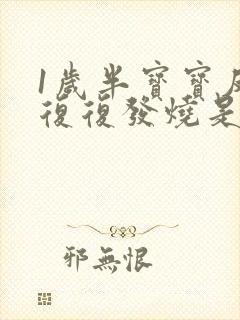 1歲半寶寶反
復復發燒是
邪無恨